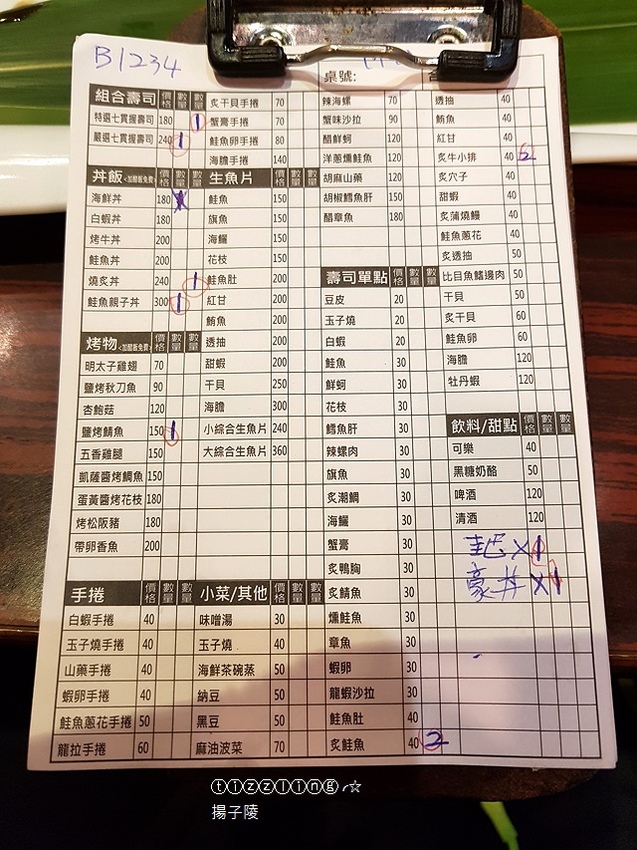 B1234
桌號:
組合壽司 價格 數量 數量
特選七貫握壽司 180
嚴選七貫握壽司 240 1
丼飯 價格 數量 數量
海鮮丼 180
白蝦丼 180
烤牛丼 200
鮭魚丼 200
燒炙丼 240 1
鮭魚親子丼 300 1
烤物 價格 數量 數量
明太子雞翅 70
鹽烤秋刀魚 90
杏鮑菇 120
鹽烤鯖魚 150 1
五香雞腿 150
凱薩醬烤鯛魚 150
蛋黃醬烤花枝 180
烤松阪豬 180
帶卵香魚 200
手捲 價格 數量 數量
白蝦手捲 40
玉子燒手捲 40
山藥手捲 40
蝦卵手捲 40
鮭魚蔥花手捲 50
龍拉手捲 60
炙干貝手捲 70
1 蟹膏手捲 70
鮭魚卵手捲 80
海膽手捲 140
生魚片 價格 數量 數量
鮭魚 150
旗魚 150
海鱺 150
花枝 150
鮭魚肚 200
紅甘 200
鮪魚 200
透抽 200
甜蝦 200
干貝 250
海膽 300
小綜合生魚片 240
大綜合生魚片 360
小菜/其他 價格 數量 數量
味噌湯 30
玉子燒 40
海鮮茶碗蒸 50
納豆 50
黑豆 50
麻油波菜 70
辣海螺 70
蟹味沙拉 90
醋鮮蚵 120
洋蔥燻鮭魚 120
胡麻山藥 120
胡椒鱈魚肝 150
醋章魚 180
壽司單點 價格 數量 數量
豆皮 20
玉子燒 20
白蝦 20
鮭魚 30
鮮蚵 30
花枝 30
鱈魚肝 30
辣螺肉 30
旗魚 30
炙潮鯛 30
海鱺 30
蟹膏 30
炙鴨胸 30
炙鯖魚 30
燻鮭魚 30
章魚 30
蝦卵 30
龍蝦沙拉 30
鮭魚肚 40
炙鮭魚 40 2
透抽 40
鮪魚 40
紅甘 40
炙牛小排 40 2
炙穴子 40
甜蝦 40
炙蒲燒鰻 40
鮭魚蔥花 40
炙透抽 50
比目魚鰭邊肉 50
干貝 50
炙干貝 60
鮭魚卵 60
海膽 120
牡丹蝦 120
飲料/甜點 價格 數量 數量
可樂 40
黑糖奶酪 50
啤酒 120
清酒 120
豪丼 x1
ⓣⓘⓩⓩⓛⓘⓝⓖ ☆
揚子陵